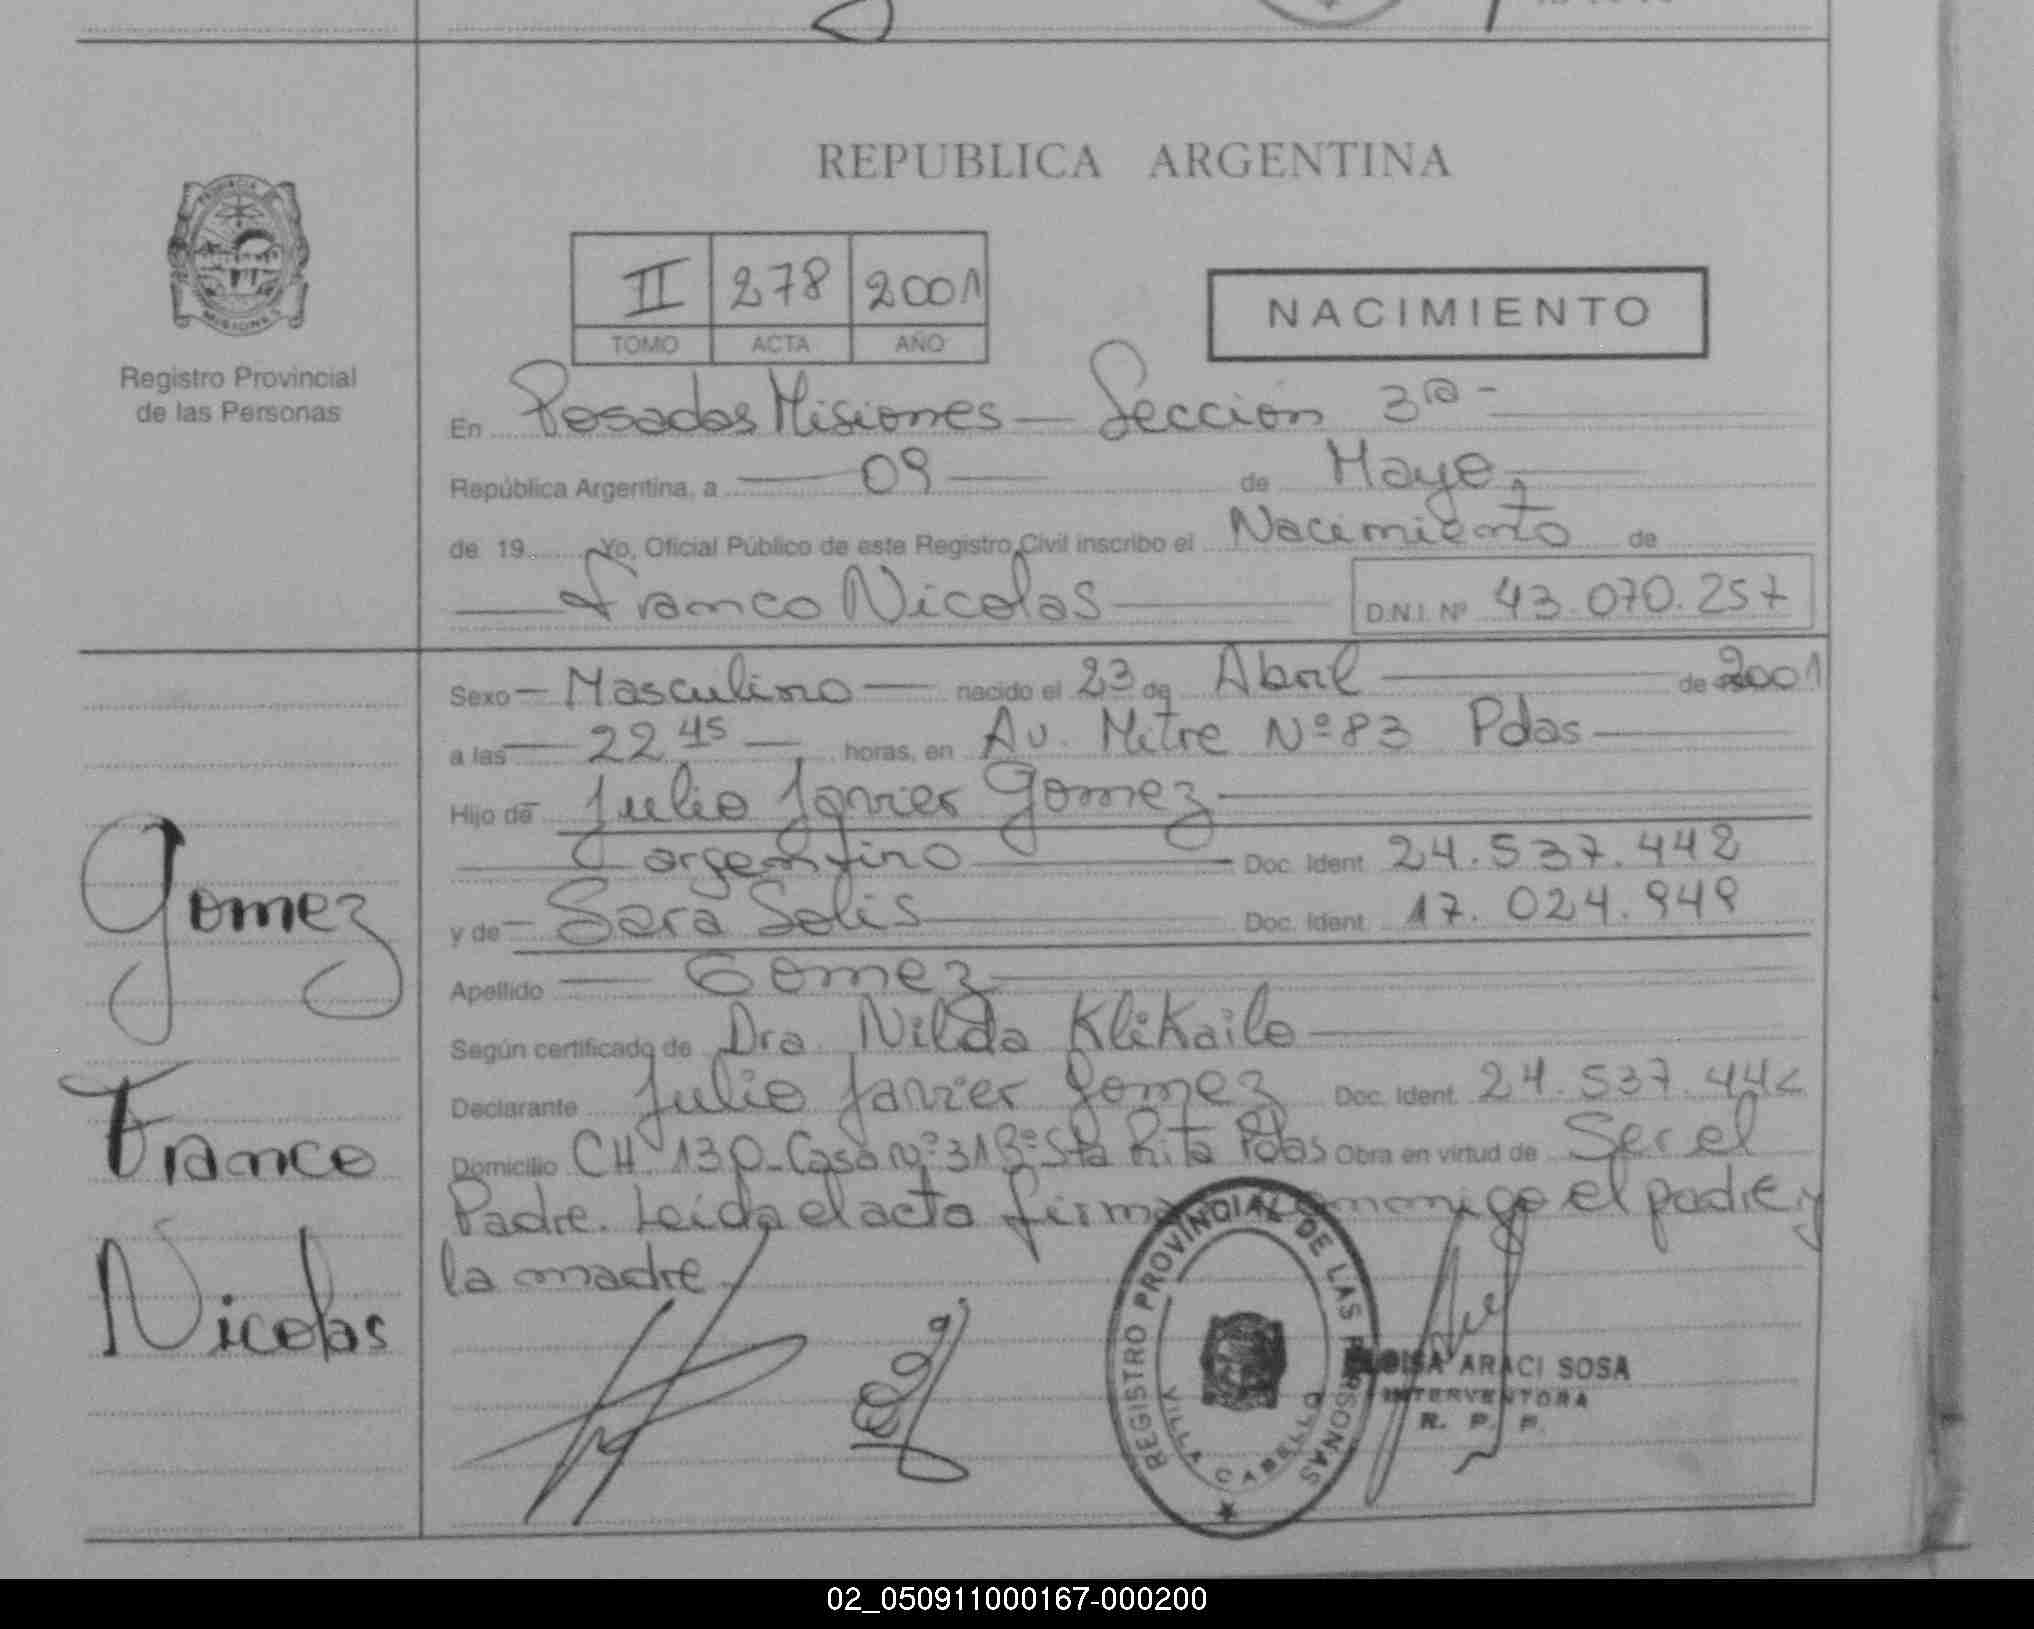 REPUBLICA ARGENTINA
PROVINCIA
MISIONES
Registro Provincial
de las Personas
II 278 2001
TOMO ACTA AÑO
NACIMIENTO
En Posadas Misiones - Sección 3ra -
República Argentina, a 09 de Mayo
de 19 Yo, Oficial Público de este Registro Civil inscribo el Nacimiento de
Franco Nicolas D.N.I. Nº 43.070.257
Sexo - Masculino - nacido el 23 de Abril de 2001
a las 22 45 horas, en Av. Mitre Nº 83 Pdas
Hijo de Julio Javier Gomez
argentino Doc. Ident. 24.537.442
y de Sara Solis Doc. Ident. 17.024.949
Apellido Gomez
Según certificado de Dra. Nilda KliKailo
Declarante Julio Javier Gomez Doc. Ident. 24.537.442
Domicilio CH 130 - Casa Nº 31 Bº Sta Rita Pdas Obra en virtud de Ser el
Padre. Leída el acta firma conmigo el padre y
la madre
Gomez
Franco
Nicolas
REGISTRO PROVINCIAL DE LAS PERSONAS
VILLA CABELLO
ARACI SOSA
INTERVENTORA
R. P. P.
02_050911000167-000200